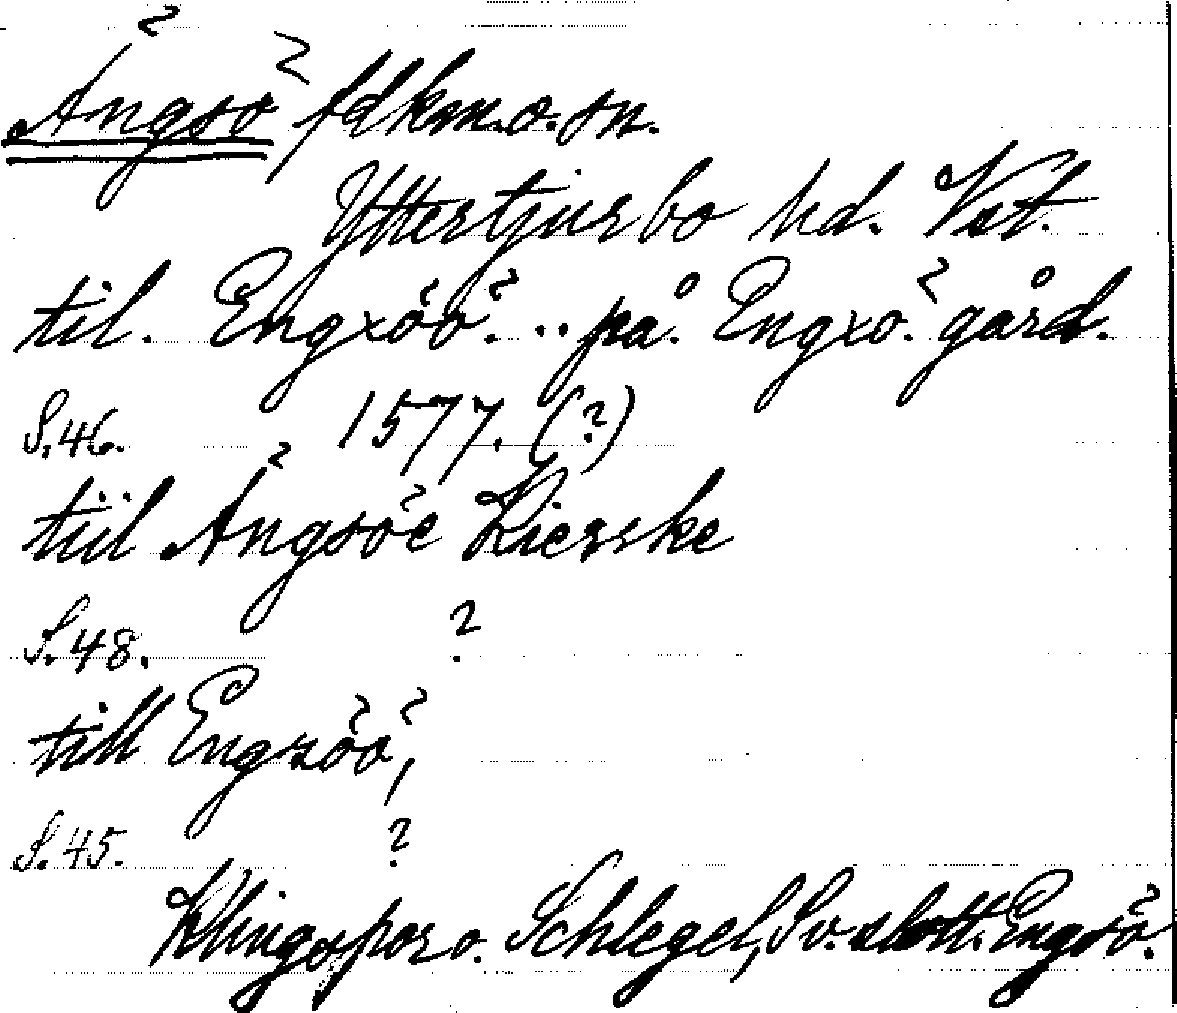 Ängsö fdkm. o. sn.
Yttertjurbo hd. Vst.
til. Engxöö. .. på. Engxö. gård.
S. 46. 1577. (?)
tiil Ängsöe Kierske
S. 48. ?
till Engsöö,
S. 45. ?
Klingspor o. Schlegel, Sv. slott. Engsö.